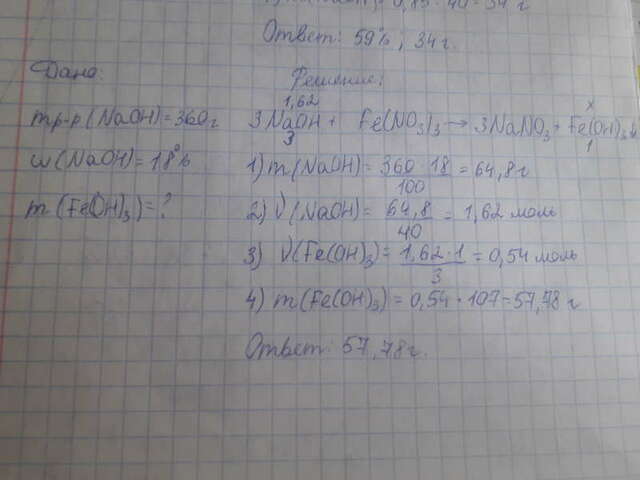 = 0,15 · 40 = 34 г
Ответ: 59%, 34 г.
Дано:
mр-р (NaOH) = 360 г
w (NaOH) = 18%
m (Fe(OH)3) = ?
Решение:
1,62 x
3NaOH + Fe(NO3)3 → 3NaNO3 + Fe(OH)3↓
3 1
1) m (NaOH) = 360 · 18 / 100 = 64,8 г
2) V (NaOH) = 64,8 / 40 = 1,62 моль
3) V (Fe(OH)3) = 1,62 · 1 / 3 = 0,54 моль
4) m (Fe(OH)3) = 0,54 · 107 = 57,78 г
Ответ: 57,78 г.